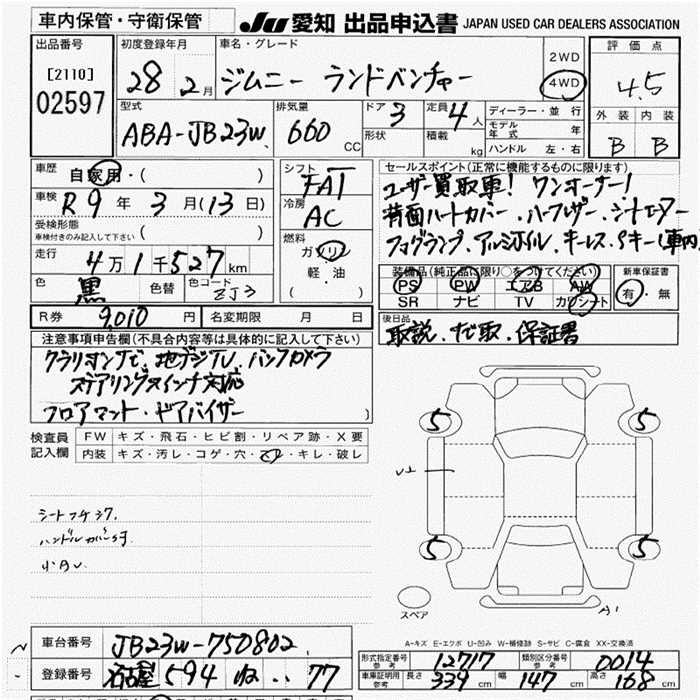 車内保管・守衛保管
JU 愛知 出品申込書 JAPAN USED CAR DEALERS ASSOCIATION
出品番号
[2110]
02597
初度登録年月
28 2月
車名・グレード
ジムニー ランドベンチャー
2WD
4WD
評価点
4.5
外装 内装
B B
型式
ABA-JB23W
排気量
660 CC
ドア 3
形状
定員 4人
積載 kg
ディーラー・並行
モデル年式 年
ハンドル 左・右
車歴
自家用・( )
車検
R9年3月(13日)
受検形態
車検付きのみ記入して下さい ( )
走行
4万1千527km
色 黒 色替 色コード ZJ3
R券 9,010円 名変期限 月 日
シフト
FAT
冷房
AC
燃料
ガソリン
軽・油
( )
セールスポイント(正常に機能するものに限ります)
ユーザー買取車! ワンオーナー!
背面ハードカバー・ハーフレザー・シートヒーター
フォグランプ、アルミホイル、キーレス・Sキー(車内
装備品(純正品に限り○をつけてください)
PS PW エアB AW
SR ナビ TV カワシート
新車保証書
有・無
後日品
取説、ナビ取、保証書
注意事項申告欄(不具合内容等は具体的に記入して下さい)
クラリオンナビ、地デジTV、バックカメラ
ステアリングスイッチ対応
フロアマット・ドアバイザー )
検査員
記入欄
FW キズ・飛石・ヒビ割・リペア跡・X要
内装 キズ・汚レ・コゲ・穴・スレ・キレ・破レ
シートスレ
ハンドル
5 5
5 5
スペア
A1
A-キズ E-エクボ U-凹み W-補修跡 S-サビ C-腐食 XX-交換済
車台番号 JB23W-750802
登録番号 名古屋 594 ね ・・77
形式指定番号 参考 12717 類別区分番号 参考 0014
車庫証明用 参考 長さ 339 cm 幅 147 cm 高さ 168 cm